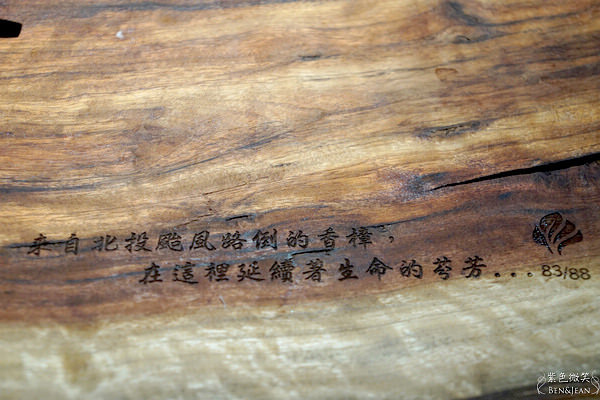 來自北投颱風路倒的香樟，
在這裡延續著生命的芬芳...83/88
紫色微笑
BEN&JEAN